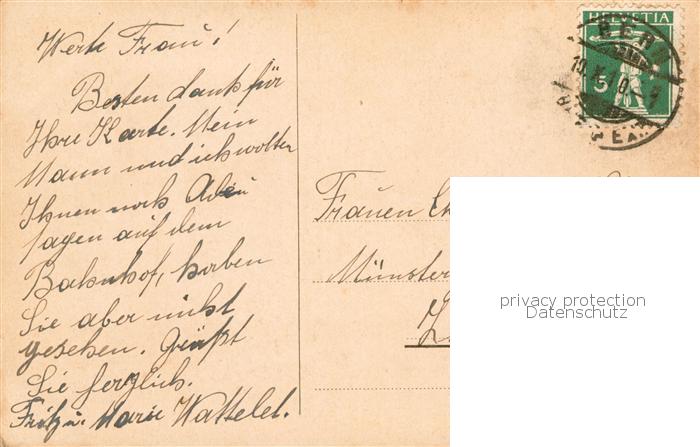 Werte Frau!
Besten dank für
Ihre Karte. Mein
Mann und ich wolten
Ihnen noch Adieu
sagen auf dem
Bahnhof, haben
Sie aber nicht
gesehen. Grüßt
Sie herzlich.
Fritz u. Marie Wattelet.
HELVETIA
BERN
5
Frauen
Münster
privacy protection
Datenschutz